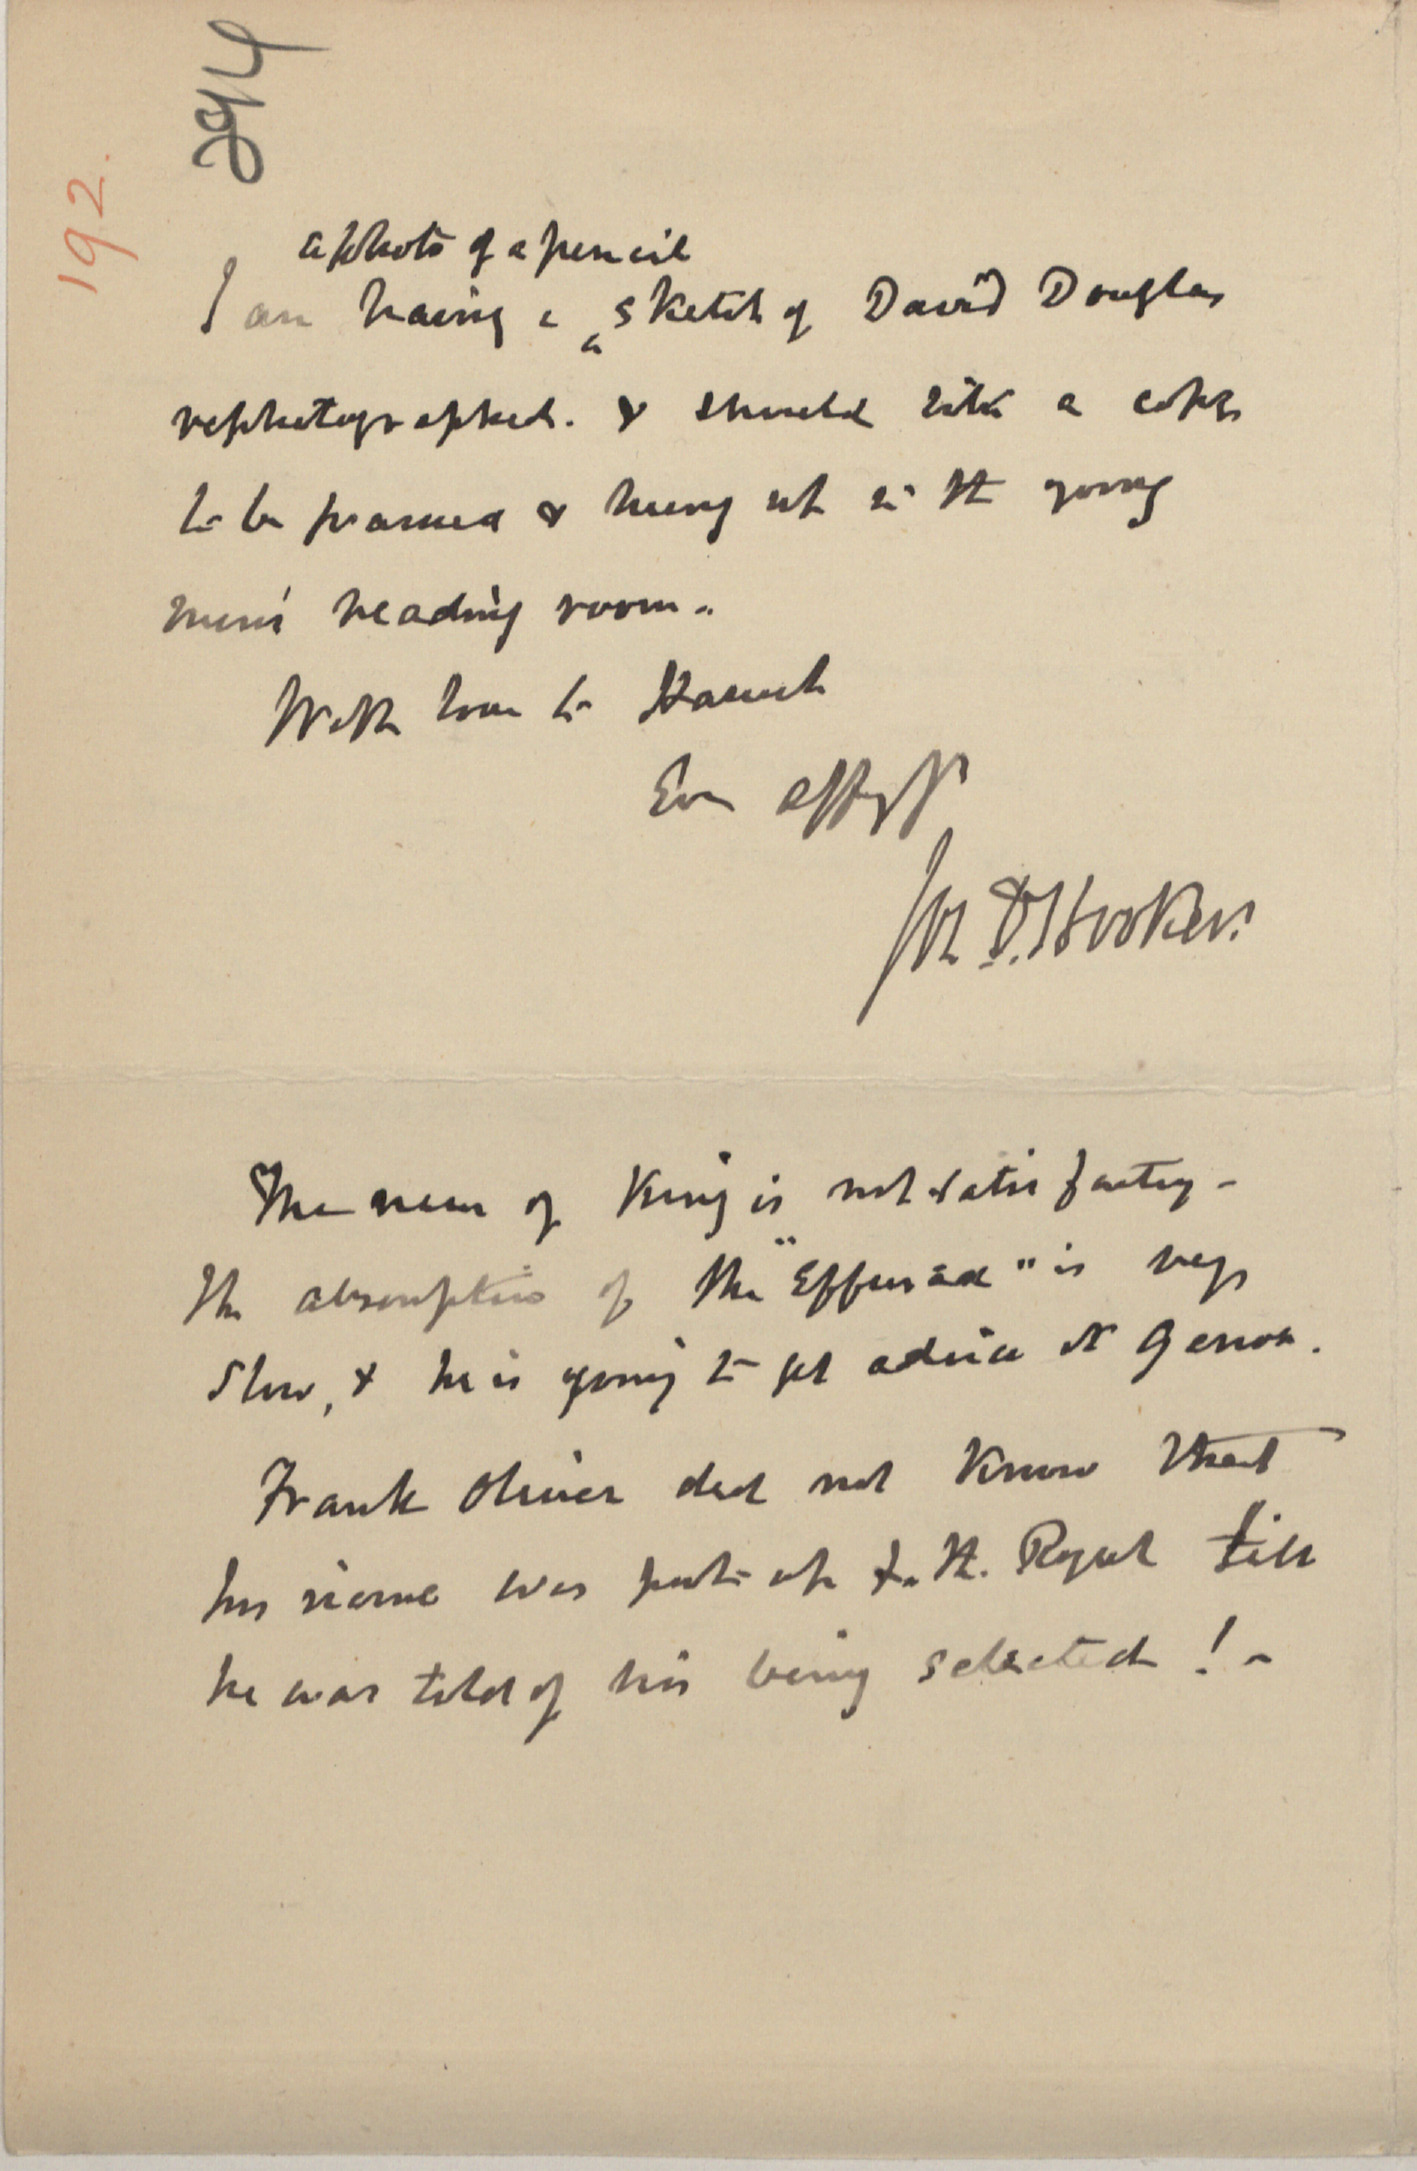 294
192.
a photo of a pencil
I am having a sketch of David Douglas
rephotographed. & should like a copy
to be framed & hung up in the young
men's reading room.
With love to Harriet
Ever affly yr
Jos. D. Hooker.
The news of King is not satisfactory -
The absorption of the "Effused" is very
slow, & he is going to get advice at Genoa.
Frank Oliver did not know that
his name was put up for the Royal till
he was told of his being selected! -